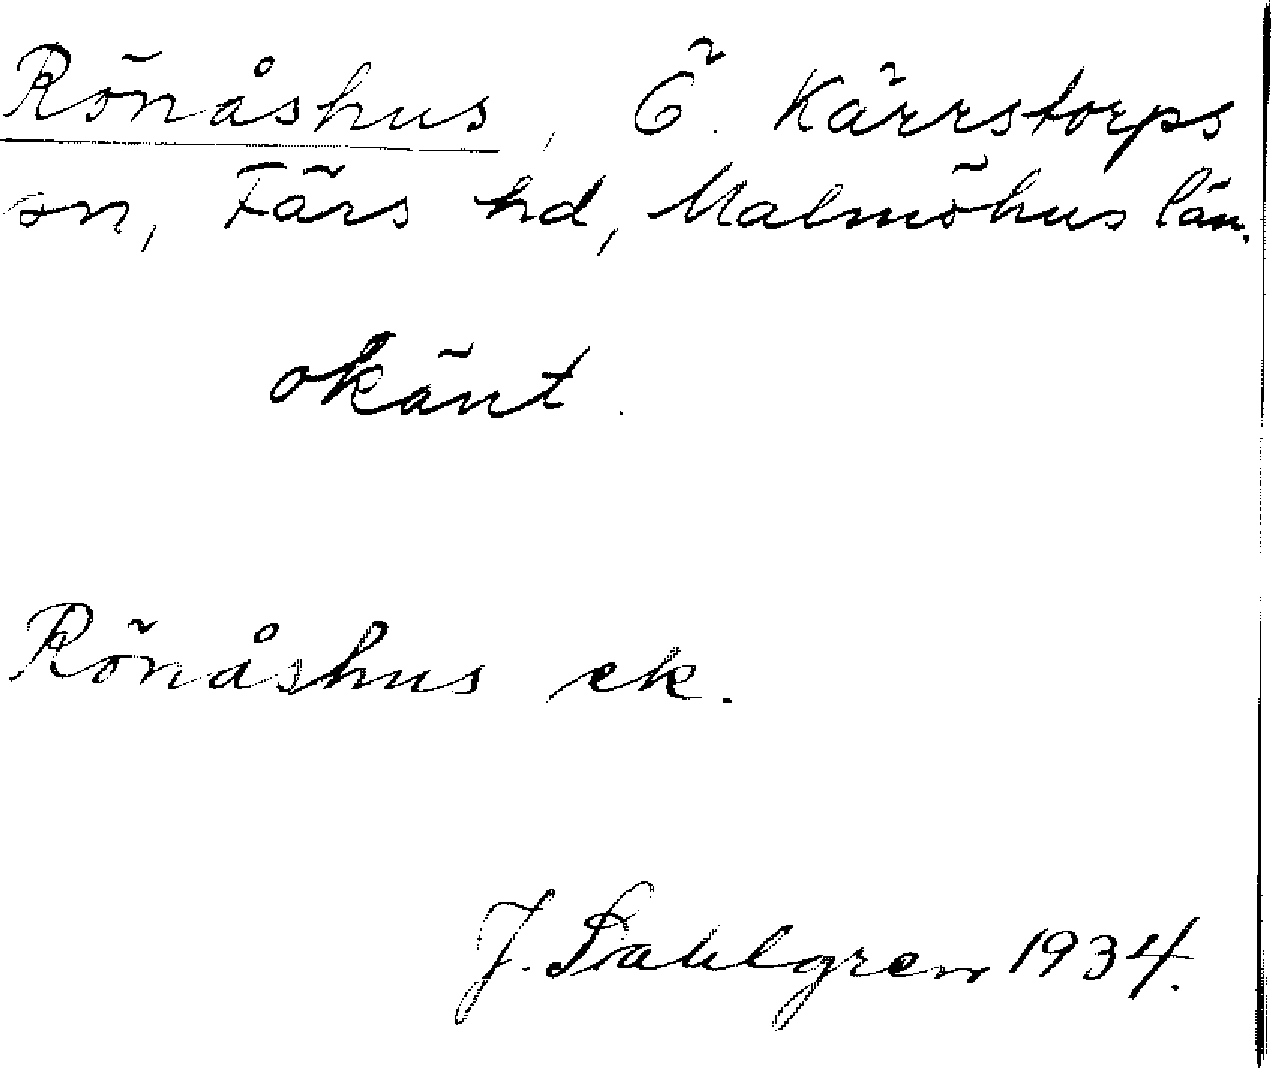 Rönåshus, Ö. Kärrstorps
sn, Färs hd, Malmöhus län.
okänt.
Rönåshus ek.
J. Sahlgren 1934.